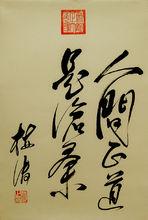 人間正道
是滄桑